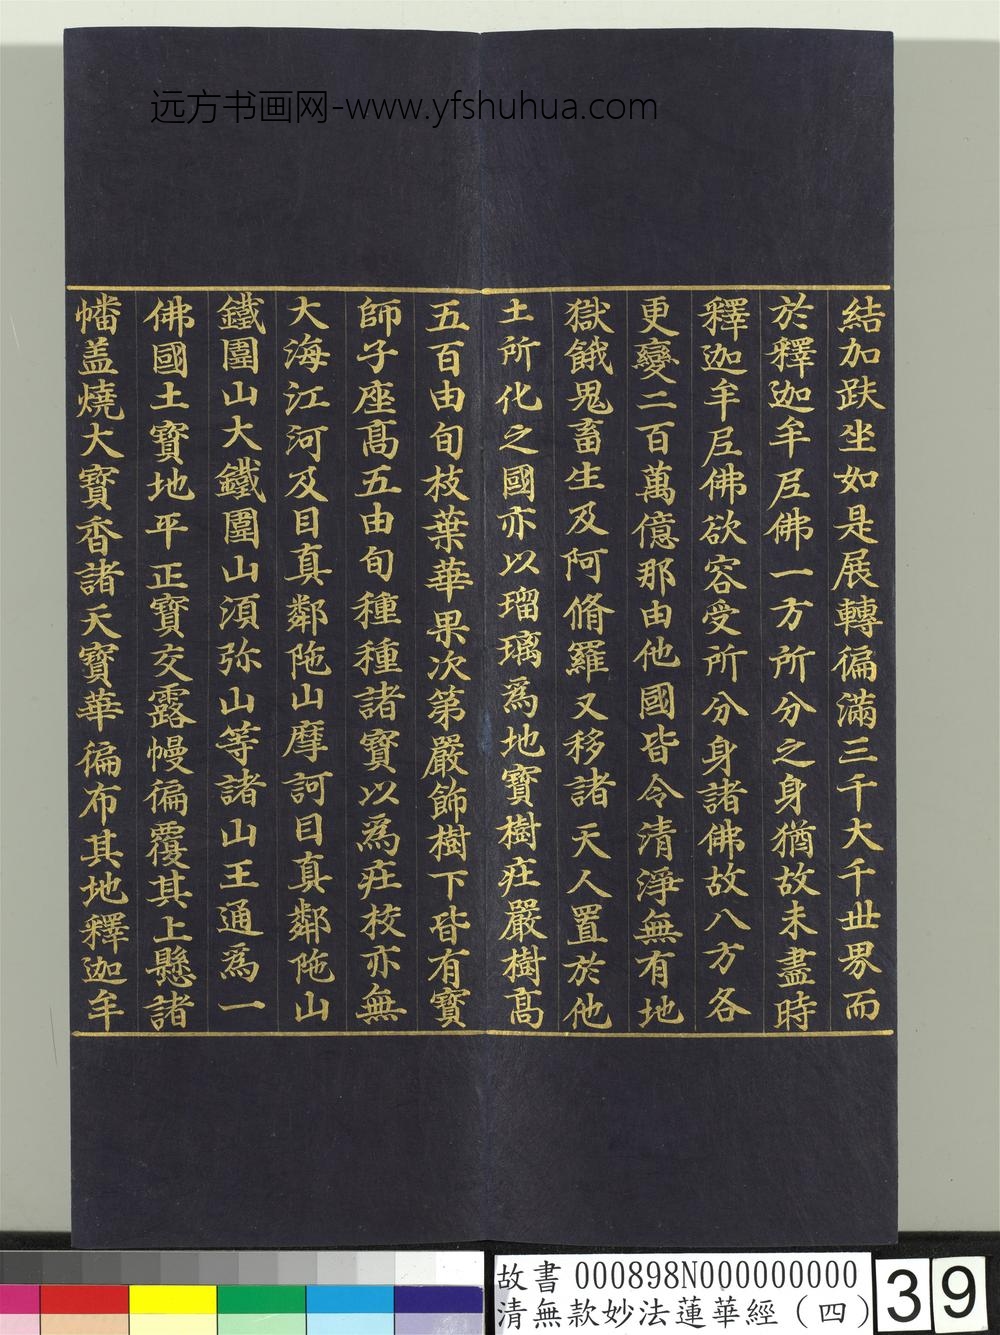 远方书画网-www.yfshuhua.com
結加趺坐如是展轉徧滿三千大千世界而
於釋迦牟尼佛一方所分之身猶故未盡時
釋迦牟尼佛欲容受所分身諸佛故八方各
更變二百萬億那由他國皆令清淨無有地
獄餓鬼畜生及阿脩羅又移諸天人置於他
土所化之國亦以瑠璃爲地寶樹莊嚴樹高
五百由旬枝葉華果次第嚴飾樹下皆有寶
師子座高五由旬種種諸寶以爲莊校亦無
大海江河及目真鄰陁山摩訶目真鄰陁山
鐵圍山大鐵圍山須弥山等諸山王通爲一
佛國土寶地平正寶交露幔徧覆其上懸諸
幡盖燒大寶香諸天寶華徧布其地釋迦牟
故書 000898N000000000
清無款妙法蓮華經（四）
39